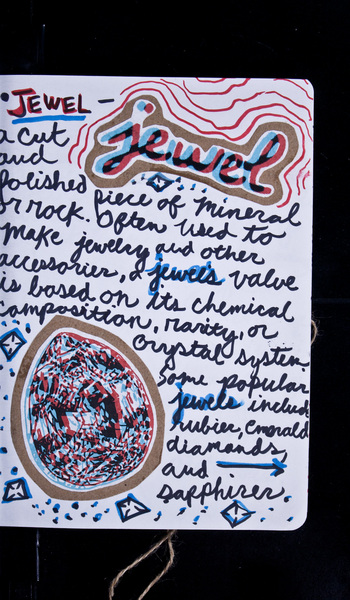 • JEWEL –
jewel
a cut
and
polished piece of mineral
or rock. Often used to
make jewelry and other
accessories, a jewel's value
is based on its chemical
composition, rarity, or
crystal system.
Some popular
jewels include
rubies, emeralds
diamonds,
and
sapphires.